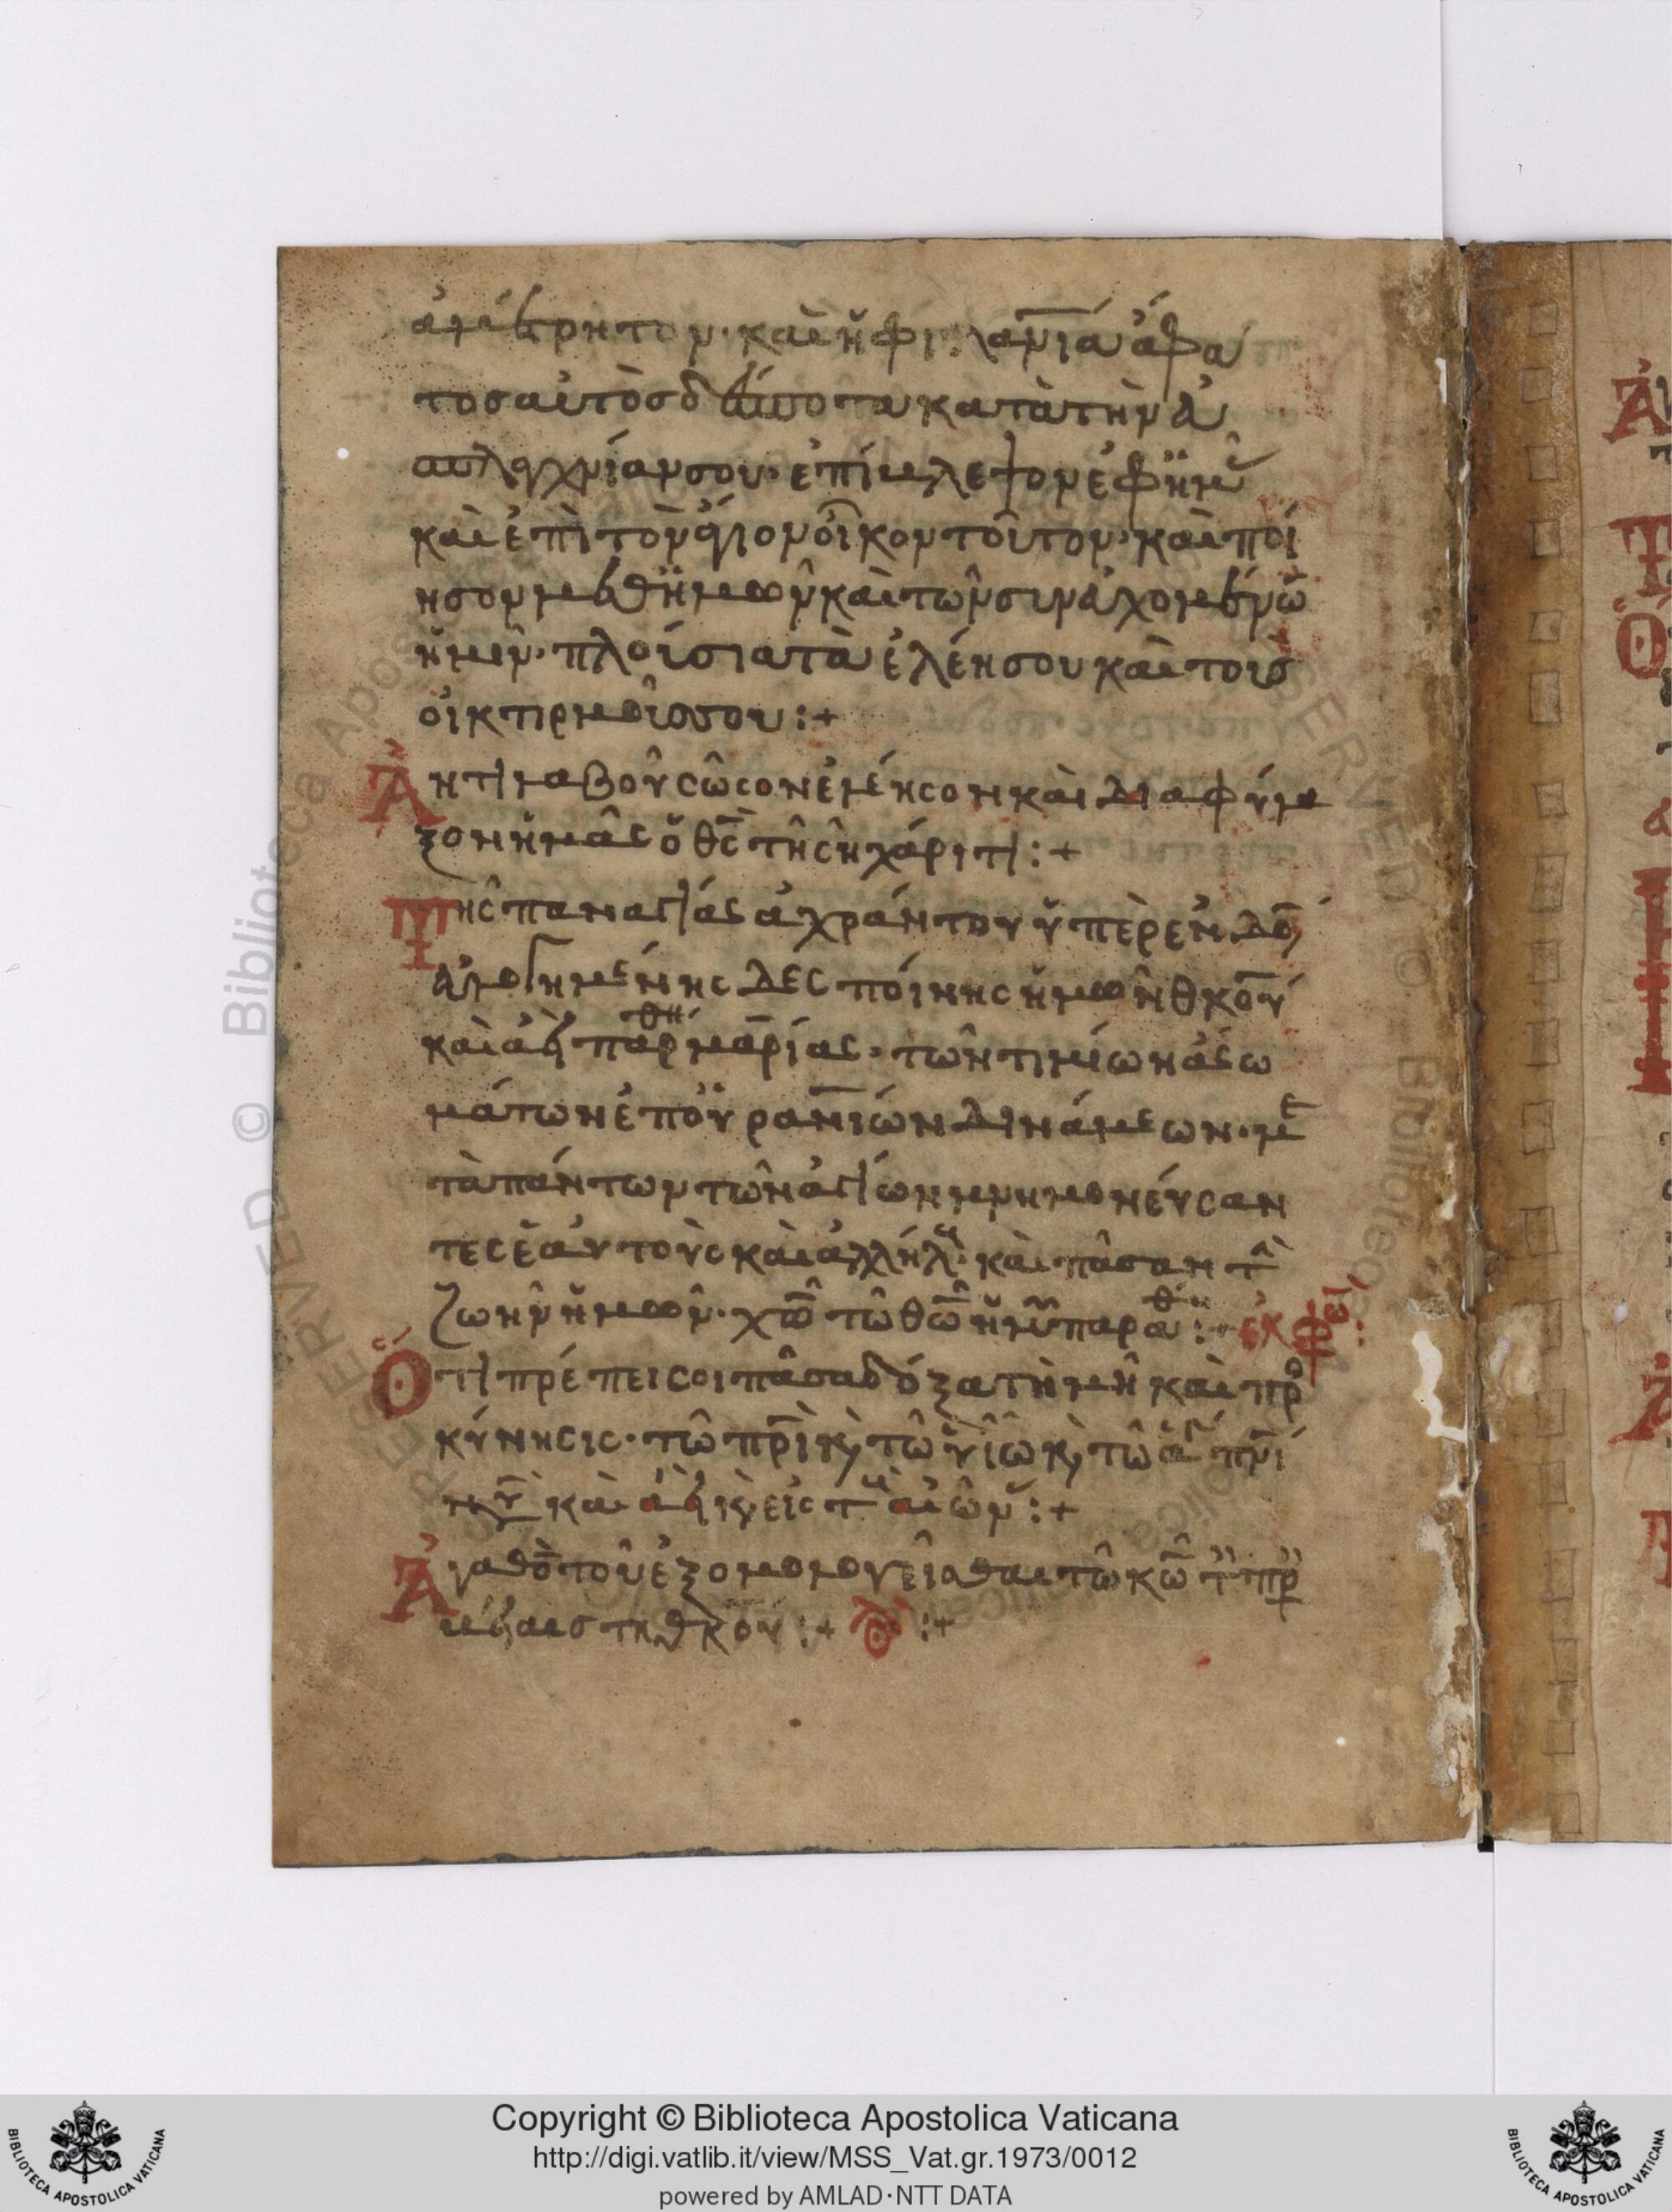 ἀμέτρητον· καὶ ἡ φιλανιά ἄφα
τος αὐτὸς δέσποτα κατὰ τὴν ἐυ
σπλαχνίαν σου· ἐπίβλεψον ἐφ ἡμ
καὶ ἐπὶ τὸν ἅγιον οἶκον τοῦτον· καὶ ποί
ησον μεθ ἡμῶν καὶ τῶν συνευχομένω
ἡμῖν· πλούσια τὰ ἐλέη σου καὶ τοὺς
οἰκτιρμούς σου :+
Ἀντιλαβοῦ σῶσον ἐλέησον καὶ διαφύλα
ξον ἡμᾶς ὁ θς τῆ σῆ χάριτι :+
Τῆς παναγίας ἀχράντου ὑπερενδό
ευλογημένης δεσποίνης ἡμῶν θκου
καὶ ἀει παρθη μαρίας· τῶν τιμίων ἀσω
μάτων ἐπουρανιών δινάμεων· με
τὰ πάντων τῶν ἁγίων μνημονέυσαν
τες ἑαυτοὺς καὶ ἀλλήλ καὶ πᾶσαν τ
ζωὴν ἡμῶν· χω τῶ θω ἡμ παραθ :+ ἐκφω :
Ὅτι πρέπει σοι πᾶσα δόξα τιμὴ καὶ προ
κύνησις· τῶ πρι κ τῶ υἱῶ κ τῶ ἁγ πνι
νυ καὶ ἀει κ εἰς τ αἰῶν :+
Ἀγαθὸ τοῦ ἐξομολογεῖσθαι τῶ κω τ πρ
εύαις τη θκου :+ δο :+
Copyright © Biblioteca Apostolica Vaticana
http://digi.vatlib.it/view/MSS_Vat.gr.1973/0012
powered by AMLAD·NTT DATA
BIBLIOTECA APOSTOLICA VATICANA
BIBLIOTECA APOSTOLICA VATICANA